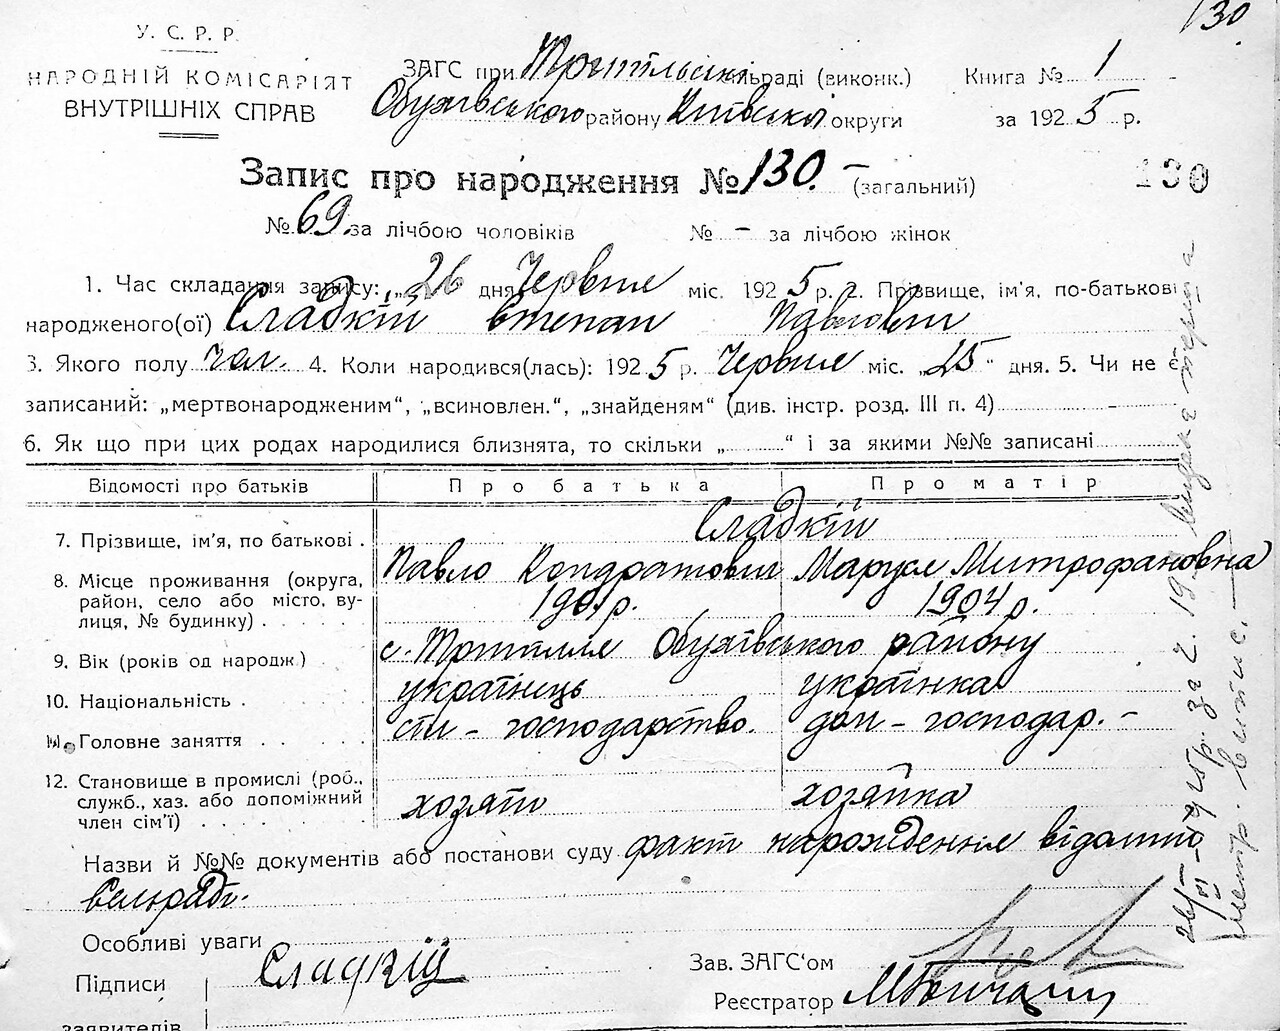 130
У. С. Р. Р.
НАРОДНІЙ КОМІСАРІЯТ
ВНУТРІШНІХ СПРАВ
ЗАГС при Трипільські раді (виконк.)
Обухівського району Київської округи
Книга № 1
за 1925 р.
Запис про народження № 130. – (загальний)
130
№ 69. за лічбою чоловіків № – за лічбою жінок
1. Час складання запису: „26 дня Червня міс. 1925 р. 2. Прізвище, ім'я, по-батькові
народженого(ої) Сладкій Степан Павлович
3. Якого полу чол. 4. Коли народився(лась): 1925 р. Червня міс. „25" дня. 5. Чи не є
записаний: „мертвонародженим", „всиновлен.", „знайденям" (див. інстр. розд. III п. 4) -
6. Як що при цих родах народилися близнята, то скільки „ " і за якими №№ записані
Відомості про батьків Про батька Про матір
7. Прізвище, ім'я, по батькові .
Сладкій
Павло Кондратович Маруся Митрофановна
8. Місце проживання (округа,
район, село або місто, ву-
лиця, № будинку) .
р. 1904 р.
9. Вік (років од народж.)
с. Трипілля Обухівського району
10. Національність .
українець українка
11. Головне заняття
сіл – господарство. дом – господар. –
12. Становище в промислі (роб.,
служб., хаз. або допоміжний
член сім'ї)
хозяїн хозяйка
Назви й №№ документів або постанови суду факт народження відомий
Сельраді.
Особливі уваги
Підписи
заявителів
Сладкій
Зав. ЗАГС'ом
Реєстратор
видана
метр. витис. –